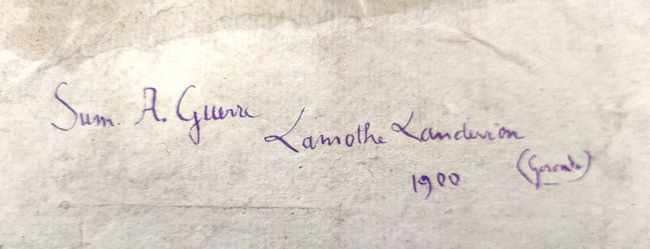 Sum. A. Guerre
Lamothe Landerron
(Gironde)
1900